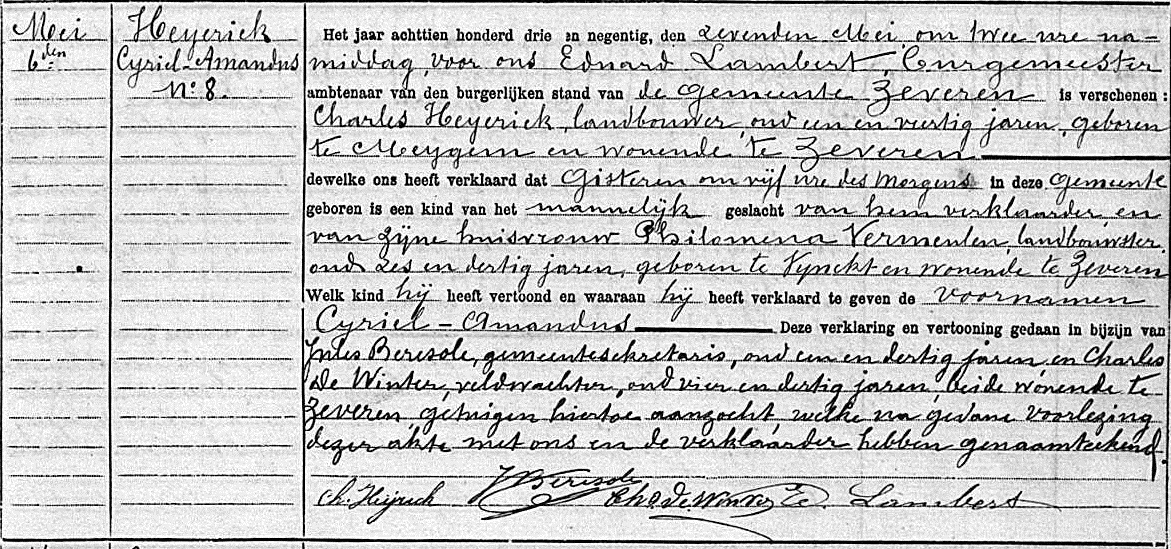 Mei
6den
Heyerick
Cyriel-Amandus
No 8.
Het jaar achttien honderd drie en negentig, den zevenden Mei, om twee ure na-
middag, voor ons Eduard Lambert, Burgemeester
ambtenaar van den burgerlijken stand van de gemeente Zeveren is verschenen:
Charles Heyerick, landbouwer, oud een en veertig jaren, geboren
te Meygem en wonende te Zeveren
dewelke ons heeft verklaard dat Gisteren om vijf ure des morgens in deze Gemeente
geboren is een kind van het mannelijk geslacht van hem verklaarder en
van zijne huisvrouw Philomena Vermeulen, landbouwster
oud zes en dertig jaren, geboren te Vynckt en wonende te Zeveren
Welk kind hij heeft vertoond en waaraan hij heeft verklaard te geven de voornamen
Cyriel-Amandus Deze verklaring en vertooning gedaan in bijzijn van
Jules Beresole, gemeentesekretaris, oud een en dertig jaren, en Charles
De Winter, veldwachter, oud vier en dertig jaren, beide wonende te
Zeveren, getuigen hiertoe aanzocht, welke na gedane voorlezing
dezer akte met ons en de verklaarder hebben genaamteekend.
Ch. Heyrick J Beresole Ch De Winter E. Lambert